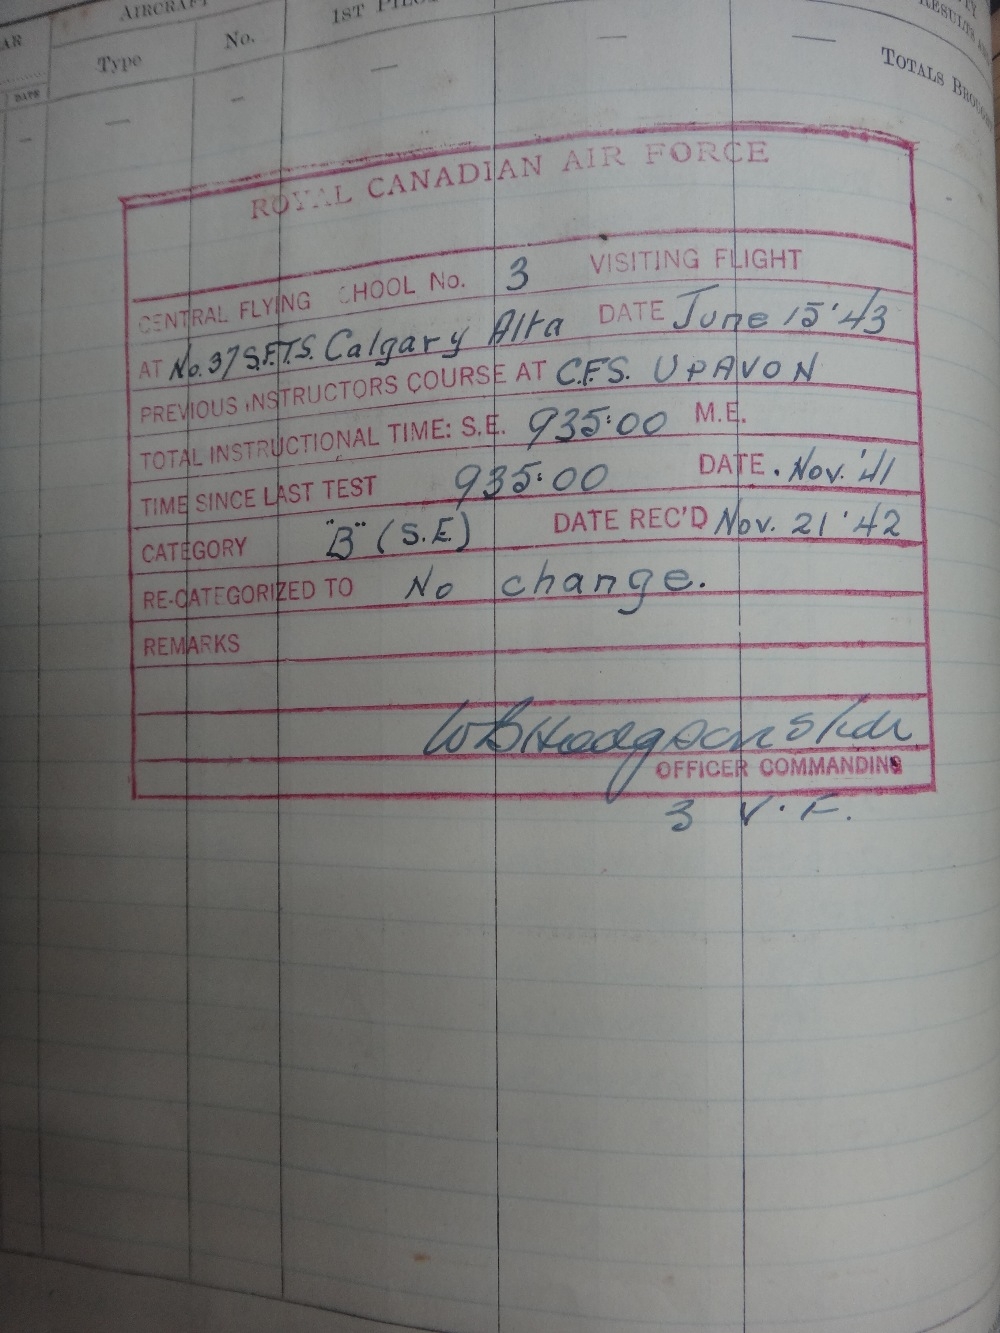 AIRCRAFT
1ST
AR
Type
No.
DATE
RESULTS
TOTALS
ROYAL CANADIAN AIR FORCE
CENTRAL FLYING SCHOOL No. 3 VISITING FLIGHT
AT No. 37 S.F.T.S. Calgary Alta DATE June 15 '43
PREVIOUS INSTRUCTORS COURSE AT C.F.S. UPAVON
TOTAL INSTRUCTIONAL TIME: S.E. 935:00 M.E.
TIME SINCE LAST TEST 935:00 DATE. Nov. '41
CATEGORY "B" (S.E) DATE REC'D Nov. 21 '42
RE-CATEGORIZED TO No change.
REMARKS
WB Hodgson S/Ldr
OFFICER COMMANDING
3 V.F.